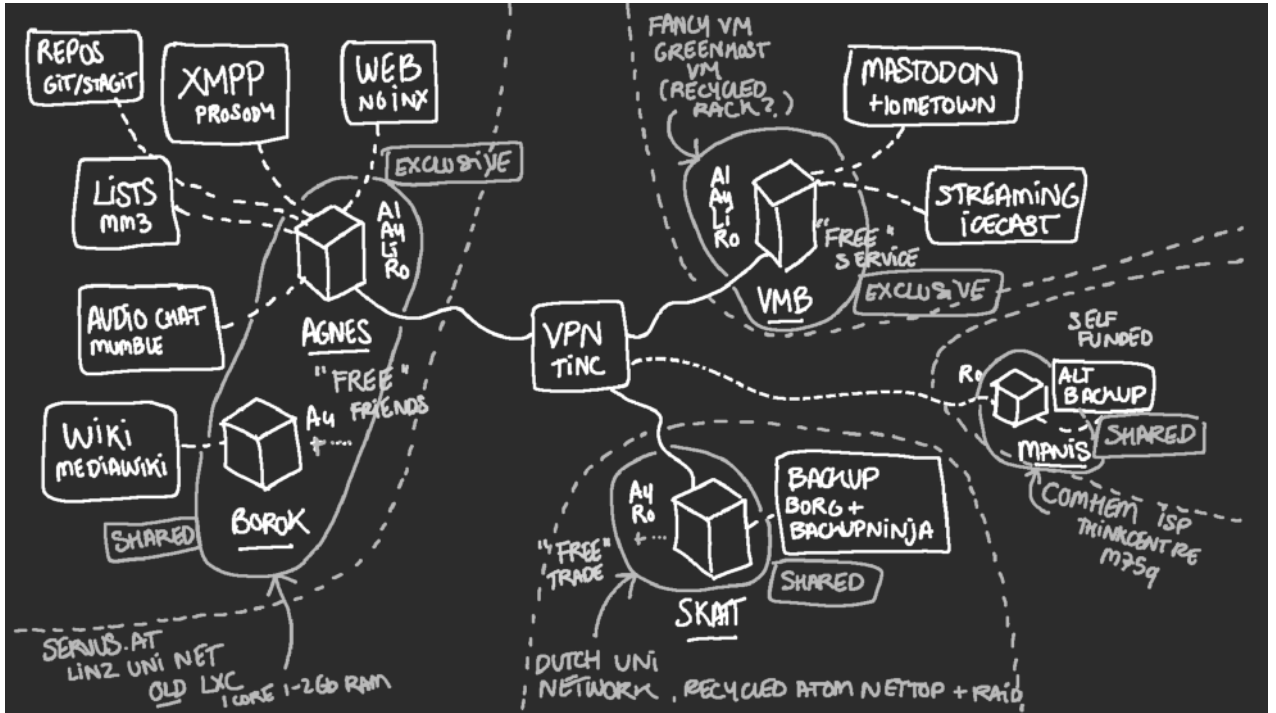 REPOS
GIT/STAGIT
XMPP
PROSODY
WEB
NGINX
EXCLUSIVE
LISTS
MM3
Al
Ay
Li
Ro
AUDIO CHAT
MUMBLE
AGNES
"FREE"
FRIENDS
WIKI
MEDIAWIKI
Ay
+ ....
BOROK
SHARED
SERVUS.AT
LINZ UNI NET
OLD LXC
1 CORE 1-2Gb RAM
VPN
TINC
FANCY VM
GREENHOST
VM
(RECYCLED
RACK?)
MASTODON
+HOMETOWN
STREAMING
ICECAST
Al
Ay
Li
Ro
"FREE"
SERVICE
VMB
EXCLUSIVE
SELF
FUNDED
Ro
ALT
BACKUP
MANIS
SHARED
COMHEM ISP
THINKCENTRE
M75q
Ay
Ro
+ ...
"FREE"
TRADE
BACKUP
BORG +
BACKUPNINJA
SHARED
SKATT
DUTCH UNI
NETWORK, RECYCLED ATOM NETTOP + RAID